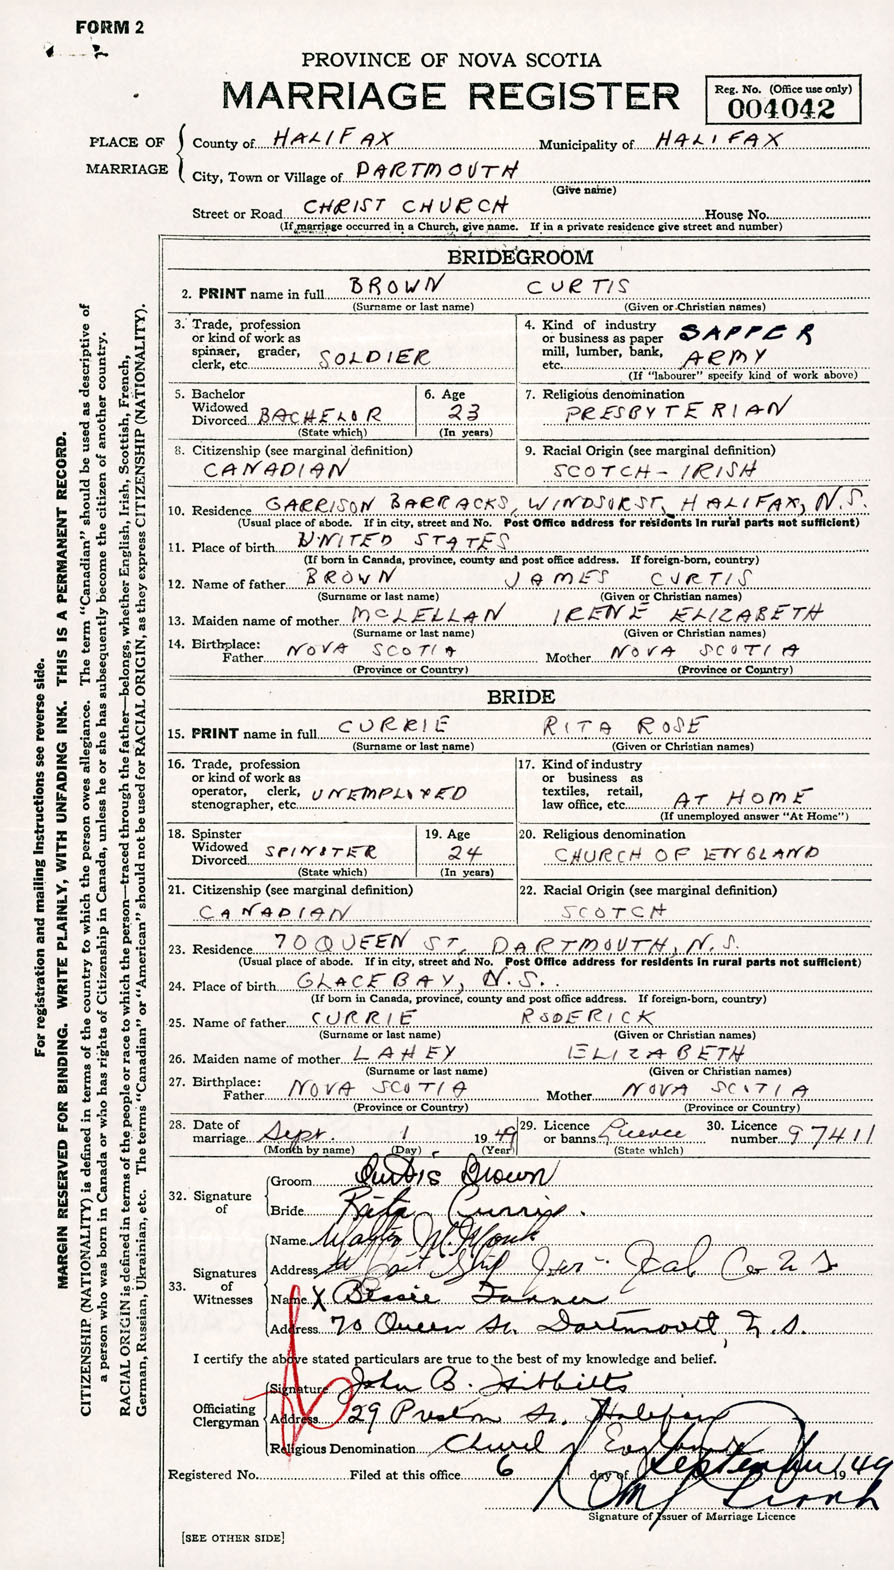 FORM 2
PROVINCE OF NOVA SCOTIA
MARRIAGE REGISTER
Reg. No. (Office use only)
004042
PLACE OF MARRIAGE
County of HALIFAX Municipality of HALIFAX
City, Town or Village of DARTMOUTH
(Give name)
Street or Road CHRIST CHURCH House No.
(If marriage occurred in a Church, give name. If in a private residence give street and number)
BRIDEGROOM
2. PRINT name in full BROWN CURTIS
(Surname or last name) (Given or Christian names)
3. Trade, profession
or kind of work as
spinner, grader,
clerk, etc. SOLDIER
4. Kind of industry
or business as paper
mill, lumber, bank,
etc. SAPPER
ARMY
(If "labourer" specify kind of work above)
5. Bachelor
Widowed
Divorced BACHELOR
(State which)
6. Age
23
(In years)
7. Religious denomination
PRESBYTERIAN
8. Citizenship (see marginal definition)
CANADIAN
9. Racial Origin (see marginal definition)
SCOTCH-IRISH
10. Residence GARRISON BARRACKS, WINDSOR ST, HALIFAX, N.S.
(Usual place of abode. If in city, street and No. Post Office address for residents in rural parts not sufficient)
11. Place of birth UNITED STATES
(If born in Canada, province, county and post office address. If foreign-born, country)
12. Name of father BROWN JAMES CURTIS
(Surname or last name) (Given or Christian names)
13. Maiden name of mother McLELLAN IRENE ELIZABETH
(Surname or last name) (Given or Christian names)
14. Birthplace:
Father NOVA SCOTIA Mother NOVA SCOTIA
(Province or Country) (Province or Country)
BRIDE
15. PRINT name in full CURRIE RITA ROSE
(Surname or last name) (Given or Christian names)
16. Trade, profession
or kind of work as
operator, clerk,
stenographer, etc. UNEMPLOYED
17. Kind of industry
or business as
textiles, retail,
law office, etc. AT HOME
(If unemployed answer "At Home")
18. Spinster
Widowed
Divorced SPINSTER
(State which)
19. Age
24
(In years)
20. Religious denomination
CHURCH OF ENGLAND
21. Citizenship (see marginal definition)
CANADIAN
22. Racial Origin (see marginal definition)
SCOTCH
23. Residence 70 QUEEN ST, DARTMOUTH, N.S.
(Usual place of abode. If in city, street and No. Post Office address for residents in rural parts not sufficient)
24. Place of birth GLACE BAY, N.S.
(If born in Canada, province, county and post office address. If foreign-born, country)
25. Name of father CURRIE RODERICK
(Surname or last name) (Given or Christian names)
26. Maiden name of mother LAHEY ELIZABETH
(Surname or last name) (Given or Christian names)
27. Birthplace:
Father NOVA SCOTIA Mother NOVA SCOTIA
(Province or Country) (Province or Country)
28. Date of
marriage Sept. 1 1949
(Month by name) (Day) (Year)
29. Licence
or banns Licence
(State which)
30. Licence
number 97411
32. Signature
of
Groom Curtis Brown
Bride Rita Currie.
33. Signatures
of
Witnesses
Name
Address
Name X Bessie Tanner
Address 70 Queen St. Dartmouth, N.S.
I certify the above stated particulars are true to the best of my knowledge and belief.
Officiating
Clergyman
Signature John B. Hibbitts
Address 29 Preston St. Halifax
Religious Denomination Church of England
Registered No. Filed at this office 6 day of September 1949
Signature of Issuer of Marriage Licence
[SEE OTHER SIDE]
For registration and mailing instructions see reverse side.
MARGIN RESERVED FOR BINDING. WRITE PLAINLY, WITH UNFADING INK. THIS IS A PERMANENT RECORD.
CITIZENSHIP (NATIONALITY) is defined in terms of the country to which the person owes allegiance. The term "Canadian" should be used as descriptive of
a person who was born in Canada or who has rights of Citizenship in Canada, unless he or she has subsequently become the citizen of another country.
RACIAL ORIGIN is defined in terms of the people or race to which the person—traced through the father—belongs, whether English, Irish, Scottish, French,
German, Russian, Ukrainian, etc. The terms "Canadian" or "American" should not be used for RACIAL ORIGIN, as they express CITIZENSHIP (NATIONALITY).